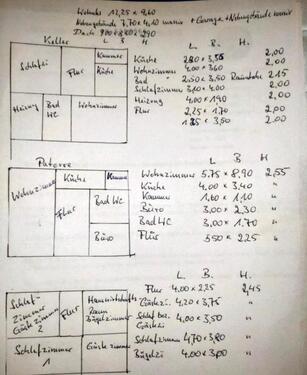 12,25 x 9,60
Nebengebäude 7,70 x 4,10 massiv + Garage + Nebengebäude massiv
Dach
Keller
L B. H
Schlafzi
Flur
Kammer
Küche
Heizung
Bad
WC
Wohnzimmer
Küche 2,00
Wohnzimmer 4,00 x 3,60 2,00
Bad 2,50 x 3,50 Raumhöhe 2.15
Schlafzimmer 2,00
Heizung 4,00 x 1,90 2,00
Flur 2,25 x 1,70 2,00
1,85 x 3,50 2,00
Paterre
L B H
Wohnzimmer
Küche
Kammer
Flur
Bad WC
Büro
Wohnzimmer 5.75 x 8,90 2,55
Küche 4.00 x 3,40 "
Kammer 1,60 x 1,10 "
Büro 3,00 x 2,30 "
Bad WC 3,00 x 1.70 "
Flur 5,50 x 2,25 "
L. B. H.
Schlaf-
Zimmer
Gäste
2
Flur
Hauswirtschafts
Raum
Bügelzimmer
Schlafzimmer
1
Gäste zimmer
Flur 4,00 x 2,25 2,45
Gästezi. 4,20 x 3,75 "
Schlaf bez.
Gästezi 4,00 x 3,50 "
Schlafzimmer 4,70 x 3,80 "
Bügelzi 4,00 x 3,00 "